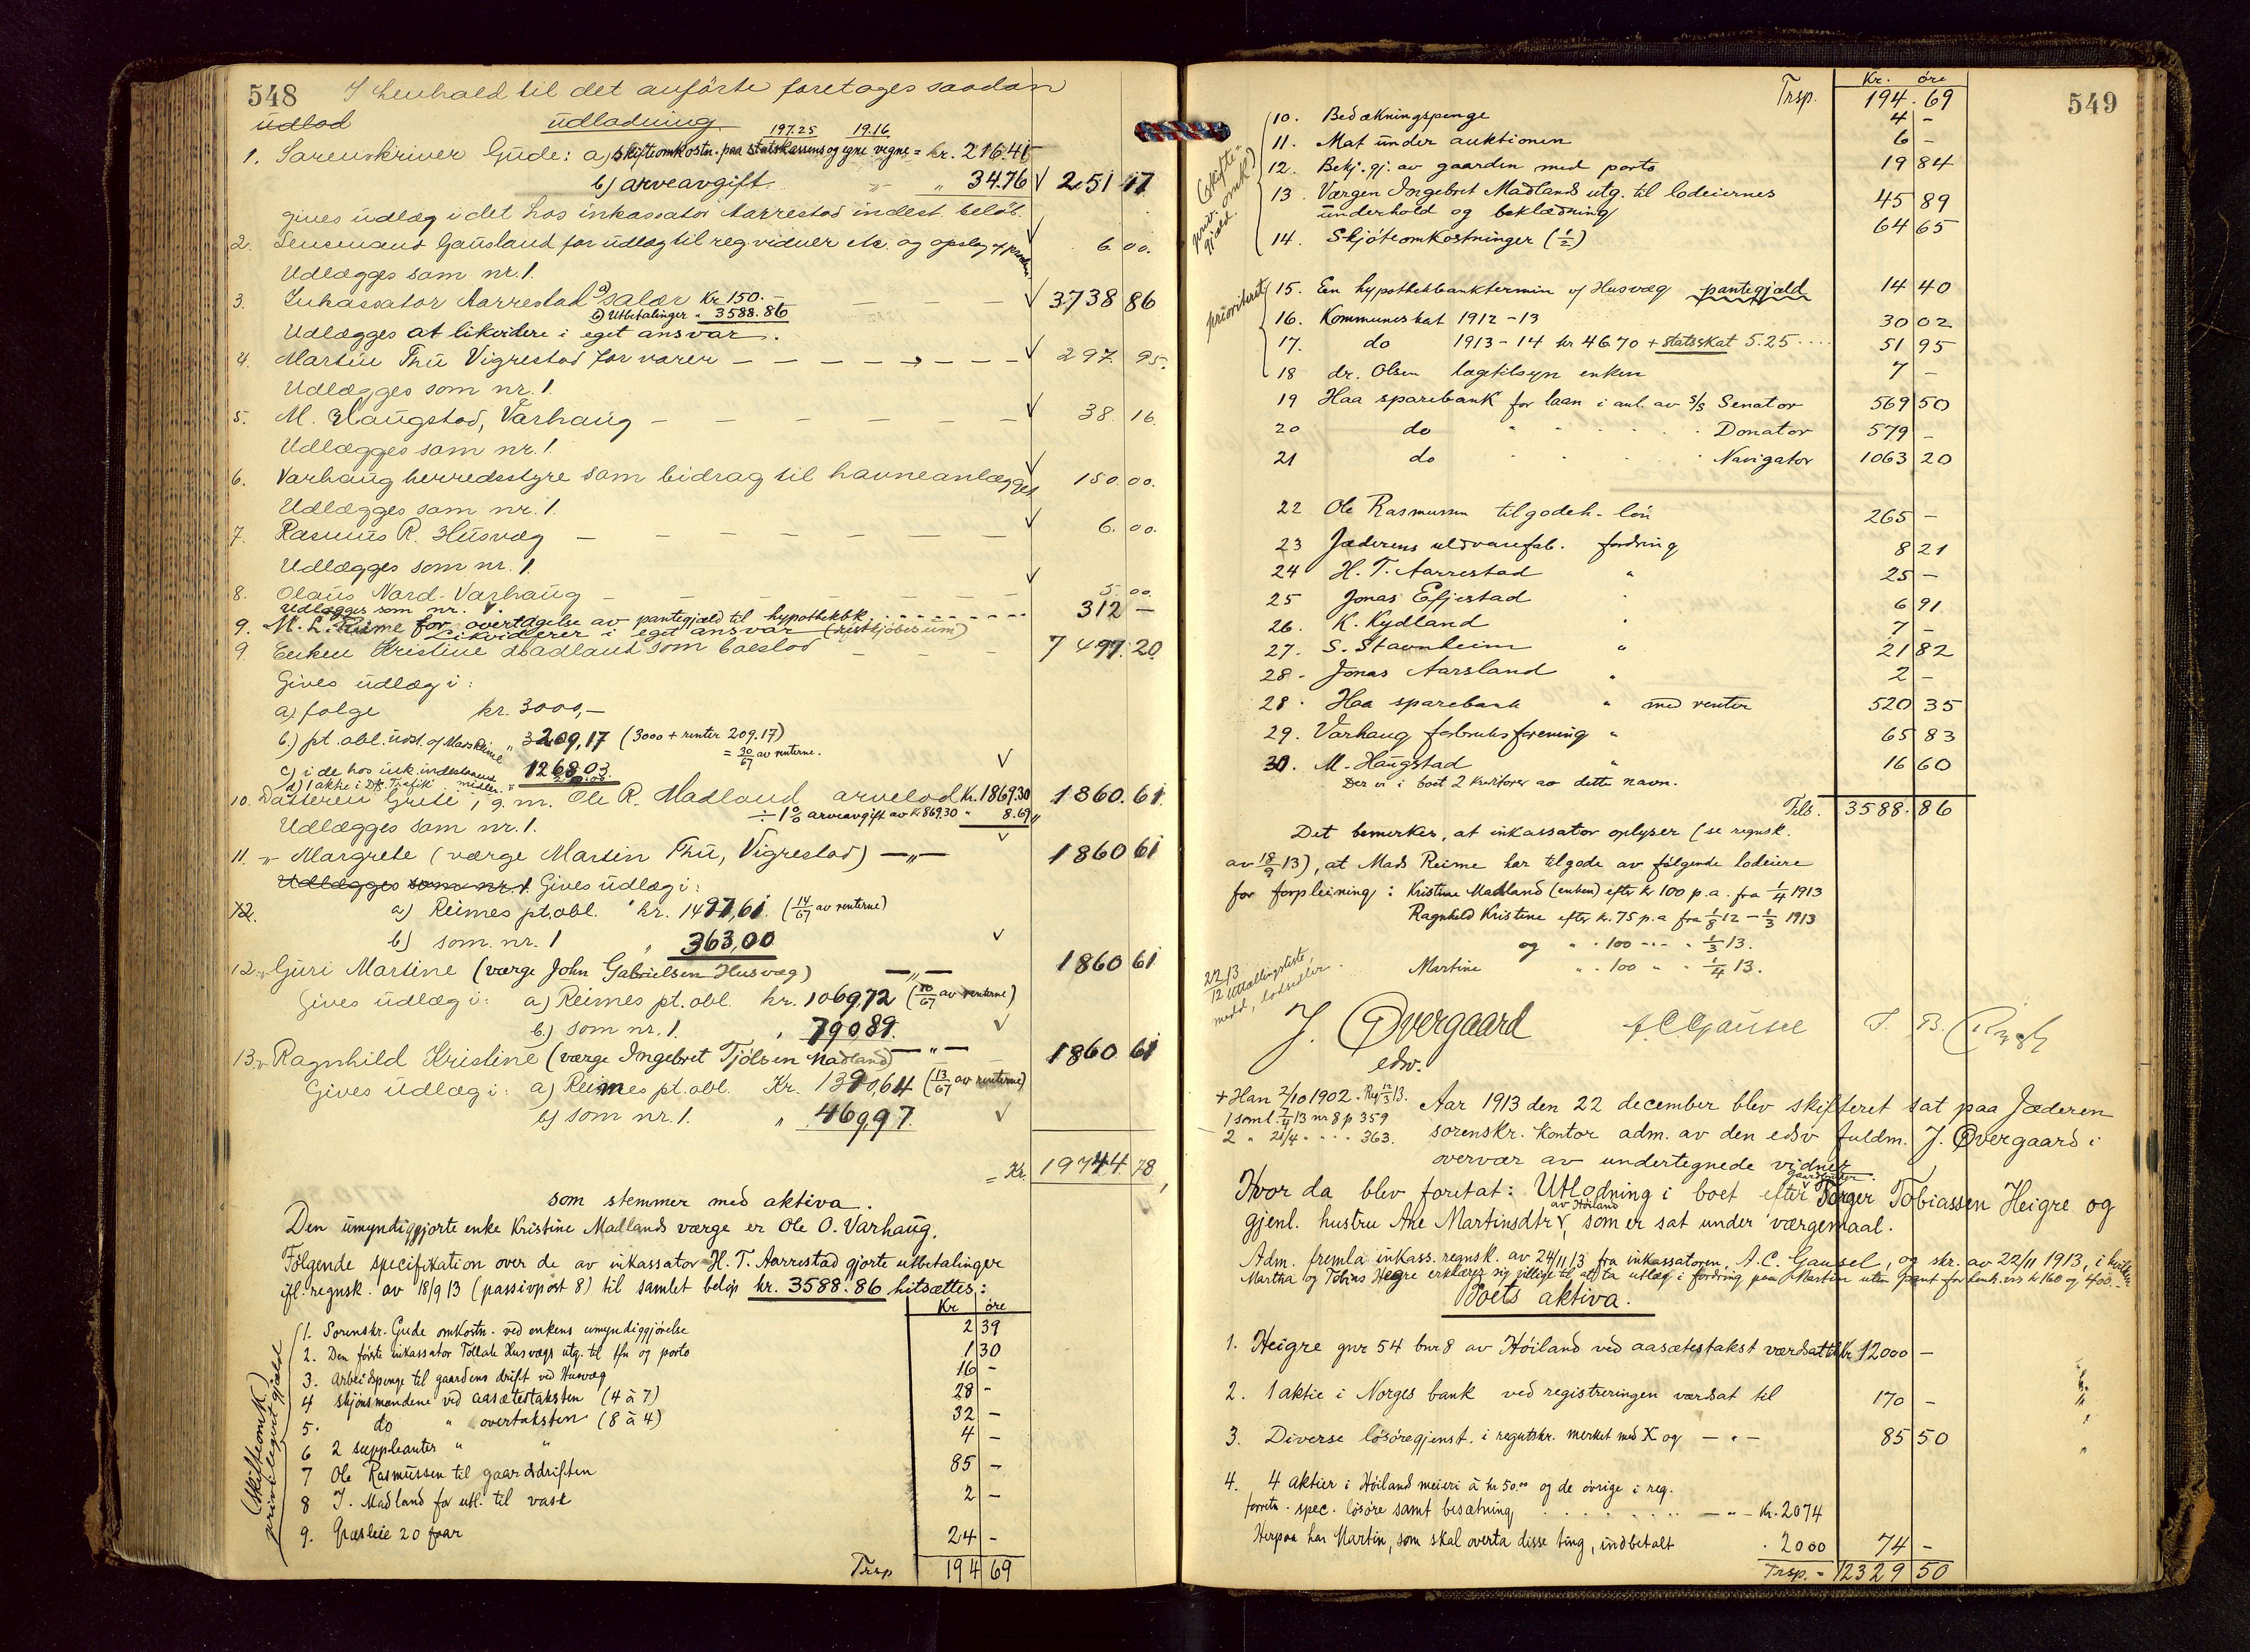 548
I henhold til det anförte foretages saadan
udlod
udlodning.
197.25 19.16
1. Sorenskriver Gude: a) skifteomkostn. paa statskassens og egne vegne = kr. 216.41
b) arveavgift " " 34.76 √ 251 17
gives udlæg i det hos inkassator Aarrestad indest. beløb.
2. Lensmand Gausland for udlæg til reg. vidner etc. og opslag af proclama √ 6.00.
Udlægges som nr. 1.
3. Inkassator Aarrestad a) salær Kr 150.- √ 3738 86
b) Utbetalinger " 3588.86
Udlægges at likvidere i eget ansvar.
4. Martin Thu Vigrestad for varer √ 297. 95.
Udlægges som nr. 1.
5. M. Haugstad, Varhaug √ 38. 16.
Udlægges som nr. 1.
6. Varhaug herredsstyre som bidrag til havneanlægget √ 150.00.
Udlægges som nr. 1.
7. Rasmus R. Husvæg √ 6.00.
Udlægges som nr. 1.
8. Olaus Nord-Varhaug √ 5.00.
Udlægges som nr. 1.
9. M. L. Reime for overtagelse av pantegjæld til hypothekbk. 312 -
Likviderer i eget ansvar
9. Enken Kristine Madland som boeslod 7497.20.
Gives udlæg i:
a) folge kr. 3000,-
b.) pt. obl. udst. af Mads Reime " 3209,17 (3000 + renter 209.17)
= 30/67 av renterne.
c) i de hos ink. indestaaende midler " 1268.03 √
d) 1 aktie i
10. Datteren Grete, g. m. Ole R. Madland arvelod Kr. 1869.30 1860.61
÷ 1% arveavgift av kr 869.30 " 8.69
Udlægges som nr. 1.
11. " Margrete (værge Martin Thu, Vigrestad) —"— √ 1860 61
Udlægges som nr. 1. Gives udlæg i:
12. a) Reimes pt. obl. kr. 1497,61. (14/67 av renterne)
b) som nr. 1 " 363,00 √
12. " Guri Martine (værge John Gabrielsen Husvæg) —"— 1860 61
Gives udlæg i: a) Reimes pt. obl. kr. 1069,72 (10/67 av renterne)
b.) som nr. 1. " 790,89. √
13. " Ragnhild Kristine (værge Ingebret Tjölsen Madland) —"— 1860 61
Gives udlæg i: a) Reimes pt. obl. Kr. 1390,64 (13/67 av renterne)
b) som nr. 1. " 469,97. √
= Kr. 19744.78
som stemmer med aktiva.
Den umyndiggjorte enke Kristine Madlands værge er Ole O. Varhaug.
Følgende specifikation over de av inkassator H. T. Aarrestad gjorte utbetalinger
ifl. regnsk. av 18/9 13 (passivpost 8) til samlet beløp kr. 3588.86 hitsættes:
Kr øre
(skifteomk.) privilegert gjæld
1. Sorenskr. Gude omkostn. ved enkens umyndiggjørelse 2 39
2. Den første inkassator Tollak Husvægs utg. til tln og porto 1 30
3. Arbeidspenge til gaardens drift ved Husvæg 16 -
4 skjønsmændene ved aasætestaksten (4 à 7) 28 -
5. do " overtaksten (8 à 4) 32 -
6 2 suppleanter " " 4 -
7 Ole Rasmussen til gaardsdriften 85 -
8 I. Madland for utl. til vask 2 -
9. Græsleie 20 faar 24 -
Trsp 194 69
549
Kr. øre
Trsp. 194.69
(skifteomk.) priv. gjæld.
10. Bedækningspenge 4 -
11. Mat under auktionen 6 -
12. Bekj. gj. av gaarden med porto 19 84
13. Værgen Ingebret Madlands utg. til lodeiernes
underhold og beklædning 45 89
14. Skjöteomkostninger (1/2) 64 65
prioritert
15. En hypothekbanktermin af Husvæg pantegjæld 14 40
16. Kommuneskat 1912-13 30 02
17. do 1913-14 kr 46.70 + statsskat 5.25 51 95
18 dr. Olsen lægetilsyn enken 7 -
19 Haa sparebank for laan i anl. av s/s Senator 569 50
20 do " " Donator 579 -
21 do " " Navigator 1063 20
22 Ole Rasmussen tilgodeh. lön 265 -
23 Jæderens uldvarefab. fordring 8 21
24 H. T. Aarrestad " 25 -
25 Jonas Efjestad " 6 91
26. K. Kydland " 7 -
27. S. Stavnheim " 21 82
28 - Jonas Aarsland " 2 -
28 . Haa sparebank " med renter 520 35
29. Varhaug forbruksforening " 65 83
30. M. Haugstad " 16 60
Der er i boet 2 kreditorer av dette navn.
Tils. 3588.86
Det bemerkes, at inkassator oplyser (se regnsk.
av 18/9 13), at Mads Reime har tilgode av følgende lodeiere
for forpleining: Kristine Madland (enken) efter kr 100 p.a. fra 1/4 1913
Ragnhild Kristine efter kr. 75 p.a fra 1/8 12 - 1/3 1913
og " " 100 " " 1/3 13.
Martine " " 100 " " 1/4 13.
22/12 13 Uttallingsliste, medd. lodsedler.
J. Øvergaard
edsv.
A C Gausel
+ Han 2/10 1902. Reg 12/3 13.
1 saml. 7/4 13 nr 8 p 359
2 " 21/4 " " " 363.
Aar 1913 den 22 december blev skifteret sat paa Jæderen
sorenskr. Kontor adm. av den edsv fuldm. J. Øvergaard i
overvær av undertegnede vidner.
Hvor da blev foretat: Utlodning i boet efter gaardbruker Torger Tobiassen Heigre og
gjenl. hustru Ane Martinsdtr av Høiland, som er sat under værgemaal.
Adm. fremla inkass. regnsk. av 24/11 13 fra inkassatoren, A. C. Gausel, og skr. av 22/11 1913, i hvilken
Martha og Tobias Hegre erklærer sig villige til at ta utlæg i fordring paa Martin uten pant for henh. vis kr 160 og 400.-
Boets aktiva.
1. Heigre gnr 54 bnr 8 av Høiland ved aasætestakst værdsat til kr 12000 -
2. 1 aktie i Norges bank ved registreringen værdsat til 170 -
3. Diverse løsøregjenst. i regutskr. merket med X og — " — 85 50
4. 4 aktier i Høiland meieri à kr 50.00 og de øvrige i reg.
forretn. spec. løsøre samt besætning — " — Kr. 2074
Herpaa har Martin, som skal overta disse ting, indbetalt " 2000 74 -
Trsp. = 12329 50